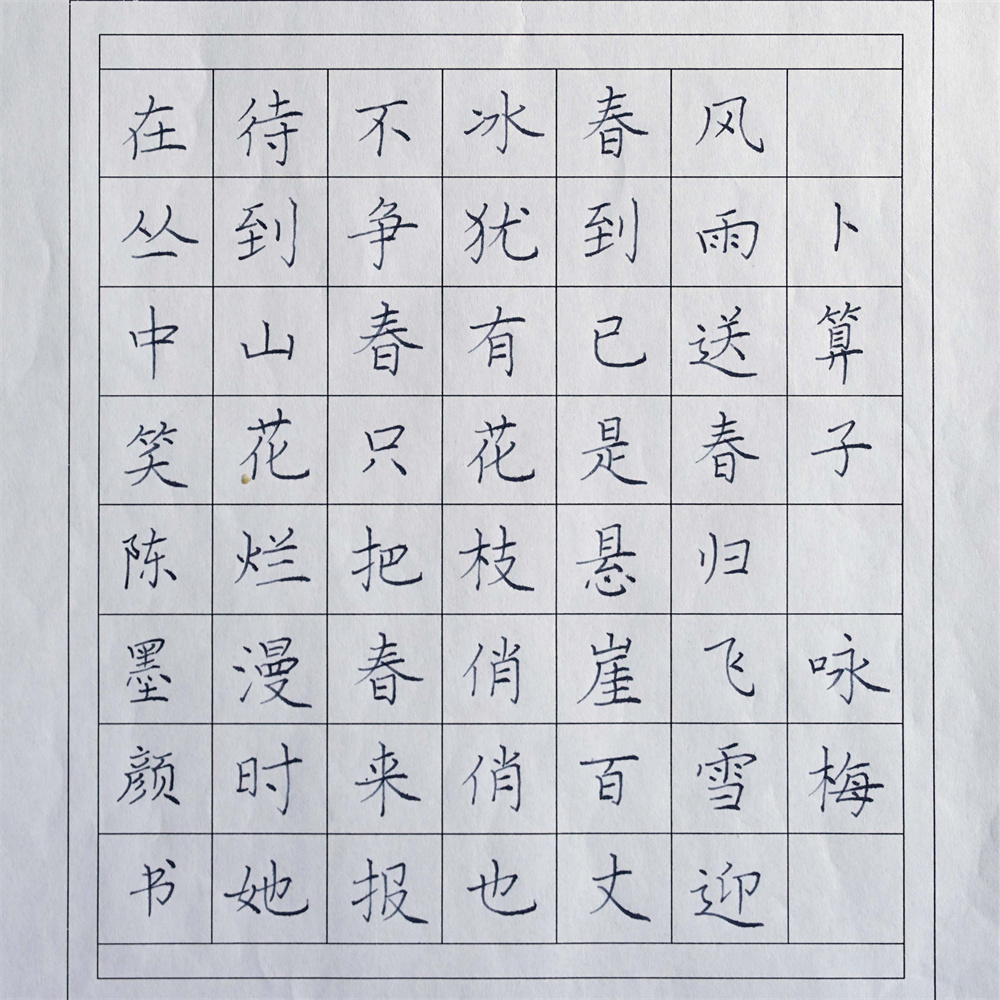 卜算子 咏梅
风雨送春归飞雪迎
春到已是悬崖百丈
冰犹有花枝俏俏也
不争春只把春来报
待到山花烂漫时她
在丛中笑陈墨颜书